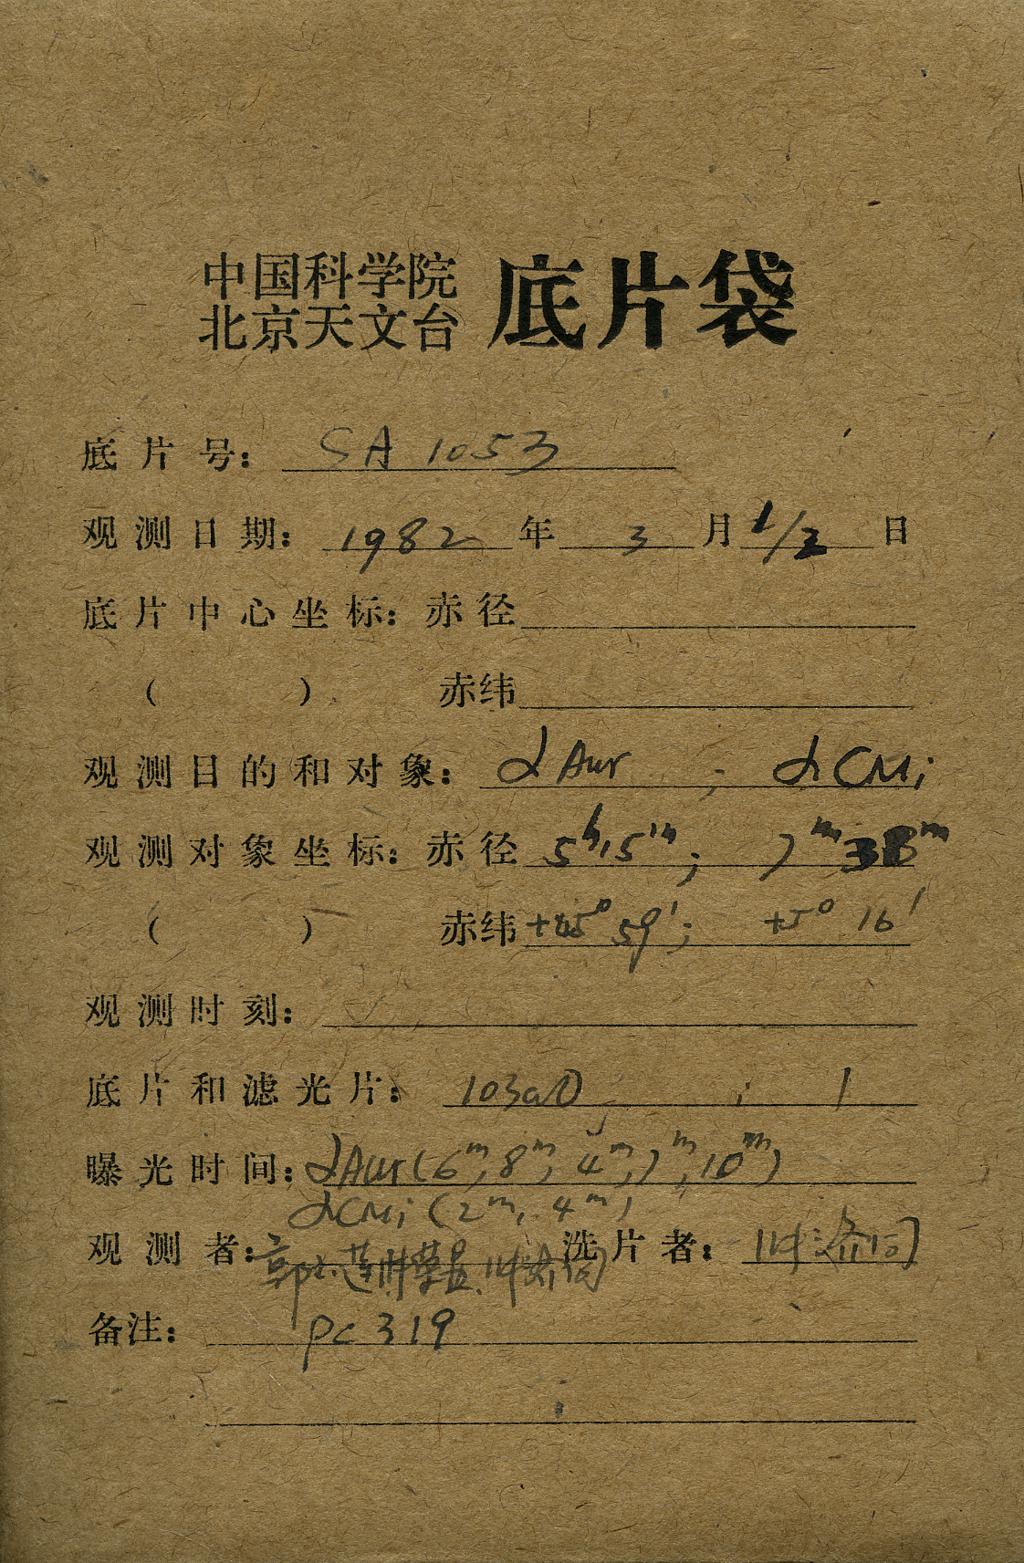 中国科学院
北京天文台 底片袋
底片号: SA 1053
观测日期: 1982 年 3 月 1/2 日
底片中心坐标: 赤径
( ) 赤纬
观测目的和对象: αAur ; αCMi
观测对象坐标: 赤径 5h15m; 7m38m
( ) 赤纬 +45° 59′; +5° 16′
观测时刻:
底片和滤光片: 103aO ; 1
曝光时间: αAur(6m, 8m, 4m, 7m, 10m)
αCMi (2m, 4m)
观测者: 洗片者:
备注: pc319